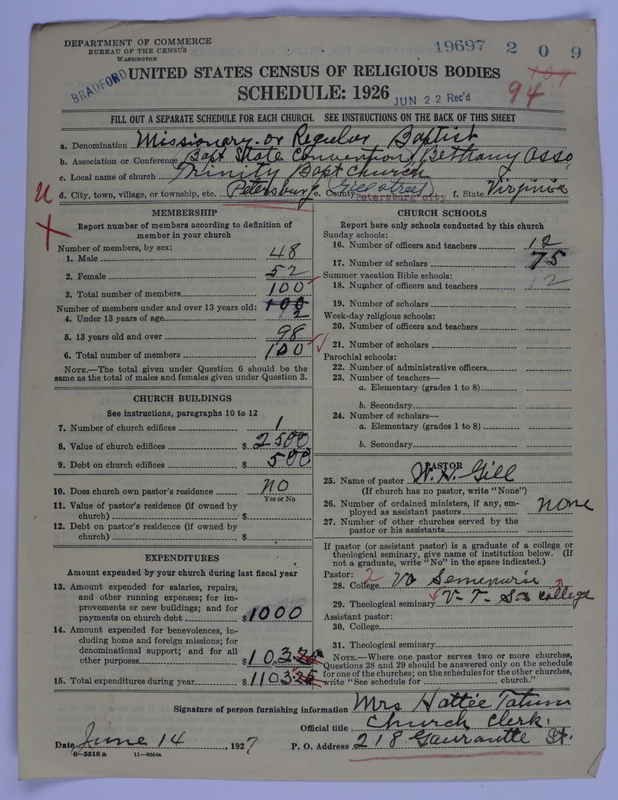 DEPARTMENT OF COMMERCE
BUREAU OF THE CENSUS
WASHINGTON
19697 2 0 9
BRADFORD
UNITED STATES CENSUS OF RELIGIOUS BODIES
104
SCHEDULE: 1926
JUN 22 Rec'd
94
FILL OUT A SEPARATE SCHEDULE FOR EACH CHURCH. SEE INSTRUCTIONS ON THE BACK OF THIS SHEET
a. Denomination Missionary or Regular Baptist
b. Association or Conference Bapt State Convention, Bethany Asso
c. Local name of church Trinity Bapt Church
d. City, town, village, or township, etc. Petersburg e. County Gill street Petersburg city f. State Virginia
MEMBERSHIP
Report number of members according to definition of
member in your church
Number of members, by sex:
1. Male 48
2. Female 52
3. Total number of members 100
Number of members under and over 13 years old: 100
4. Under 13 years of age 2
5. 13 years old and over 98
6. Total number of members 100
NOTE.—The total given under Question 6 should be
same as the total of males and females given under Question 3.
CHURCH BUILDINGS
See instructions, paragraphs 10 to 12
7. Number of church edifices 1
8. Value of church edifices $ 2500
9. Debt on church edifices $ 500
10. Does church own pastor's residence no
Yes or No
11. Value of pastor's residence (if owned by
church) $
12. Debt on pastor's residence (if owned by
church) $
EXPENDITURES
Amount expended by your church during last fiscal year
13. Amount expended for salaries, repairs,
and other running expenses; for im-
provements or new buildings; and for
payments on church debt $ 1000
14. Amount expended for benevolences, in-
cluding home and foreign missions; for
denominational support; and for all
other purposes $ 103.25
15. Total expenditures during year $ 1103.25
CHURCH SCHOOLS
Report here only schools conducted by this church
Sunday schools:
16. Number of officers and teachers 12
17. Number of scholars 75
Summer vacation Bible schools:
18. Number of officers and teachers 12
19. Number of scholars
Week-day religious schools:
20. Number of officers and teachers
21. Number of scholars
Parochial schools:
22. Number of administrative officers
23. Number of teachers—
a. Elementary (grades 1 to 8)
b. Secondary
24. Number of scholars—
a. Elementary (grades 1 to 8)
b. Secondary
PASTOR
25. Name of pastor W. H. Gill
(If church has no pastor, write "None")
26. Number of ordained ministers, if any, em-
ployed as assistant pastors none
27. Number of other churches served by the
pastor or his assistants
If pastor (or assistant pastor) is a graduate of a college or
theological seminary, give name of institution below. (If
not a graduate, write "No" in the space indicated.)
Pastor:
28. College 2 Va Seminarie
29. Theological seminary V. T. S. college
Assistant pastor:
30. College
31. Theological seminary
NOTE.—Where one pastor serves two or more churches,
Questions 28 and 29 should be answered only on the schedule
for one of the churches; on the schedules for the other churches,
write "See schedule for church."
Signature of person furnishing information Mrs Hattie Tatum
Official title Church Clerk.
Date June 14, 1927 P. O. Address 218 St.
8—5518 a 11—9054a